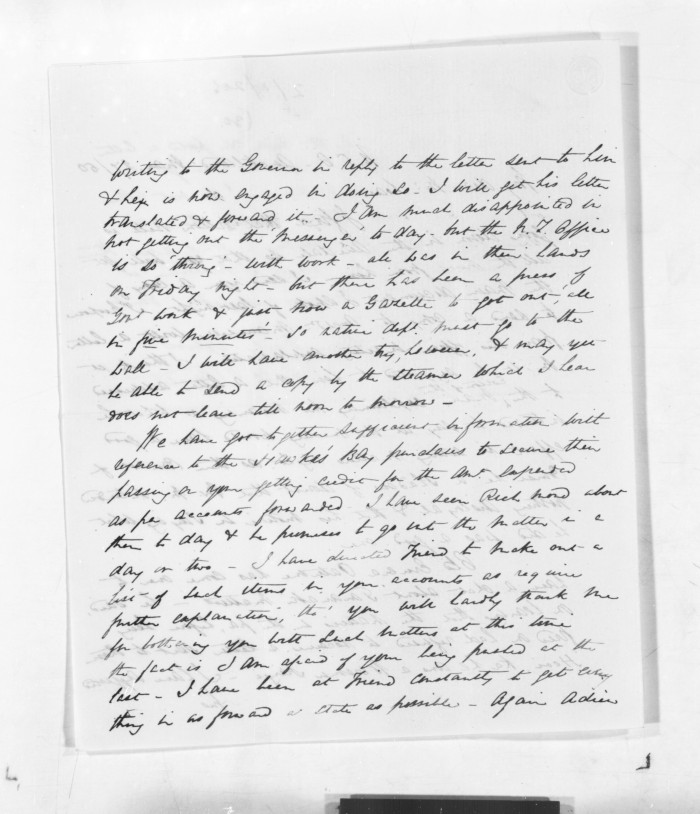 writing to the Governor in reply to the letter sent to him
& he is now engaged in doing so - I will get his letter
translated & forward it - I am much disappointed in
not getting out the "Messenger" to day - but the N. Z. Office
is so throng - with work - all was in their hands
on Friday night - but there has been a press of
Govt work & just now a Gazette to get out, all
in five minutes - so native dept. must go to the
wall - I will have another try, however, & may yet
be able to send a copy by the steamer which I hear
does not leave till noon to morrow -
We have got together sufficient information with
reference to the Hawke's Bay purchases to secure their
passing or your getting credit for the amt. expended
as per accounts forwarded I have seen Richmond about
them to day & he promises to go into the matter in a
day or two - I have directed Friend to make out a
list of such items in your accounts as require
further explanation, tho' you will hardly thank me
for bothering you with such matters at this time
the fact is I am afraid of your being pushed at the
last - I have been at Friend constantly to get every
thing in as forward a state as possible - Again Adieu